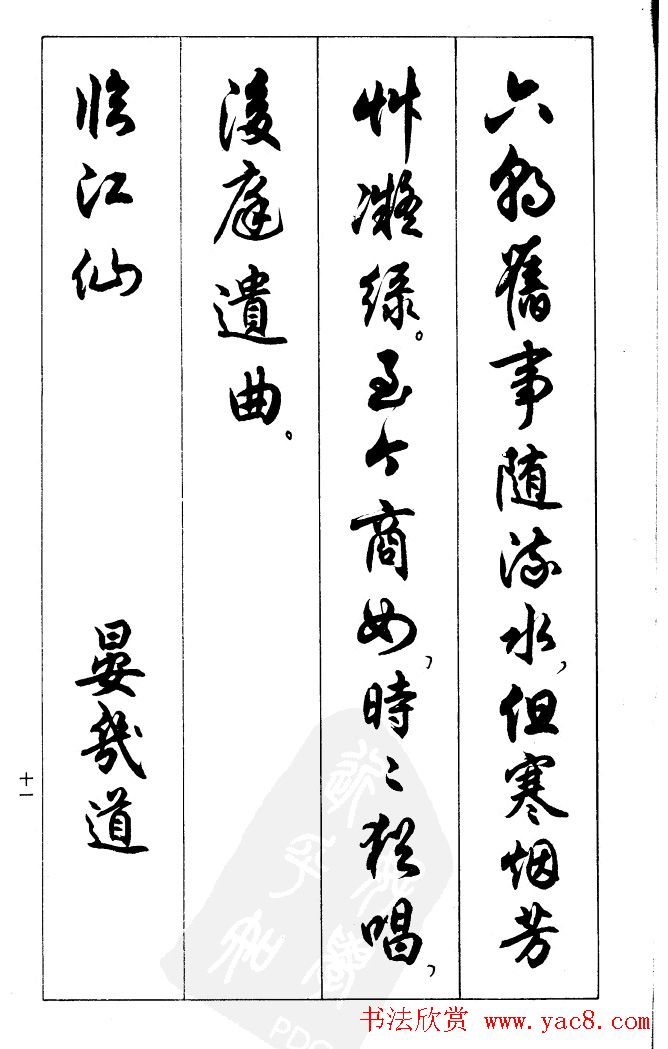 六朝舊事随流水,但寒烟芳
艸凝緑。至今商女,時〻犹唱,
後庭遺曲。
临江仙 晏幾道
十一
书法欣赏 www.yac8.com